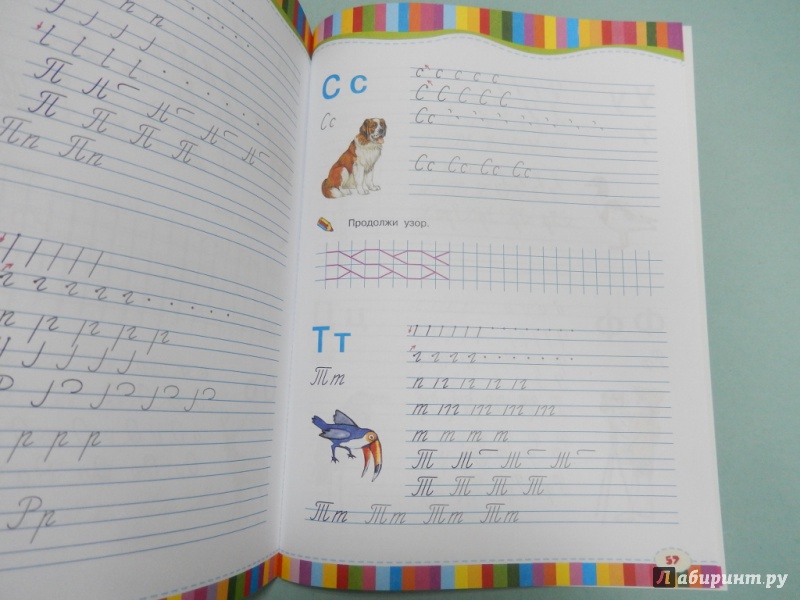 п п
П П П П
Пп Пп
р р р
Рр
С с
Сс
с с с с с
С С С С С
Сс
Сс Сс Сс Сс
Продолжи узор.
Т т
Тт
г г г г
п
т
т т т т
Т
Т Т Т Т
Тт Тт Тт Тт
57
Лабиринт.ру